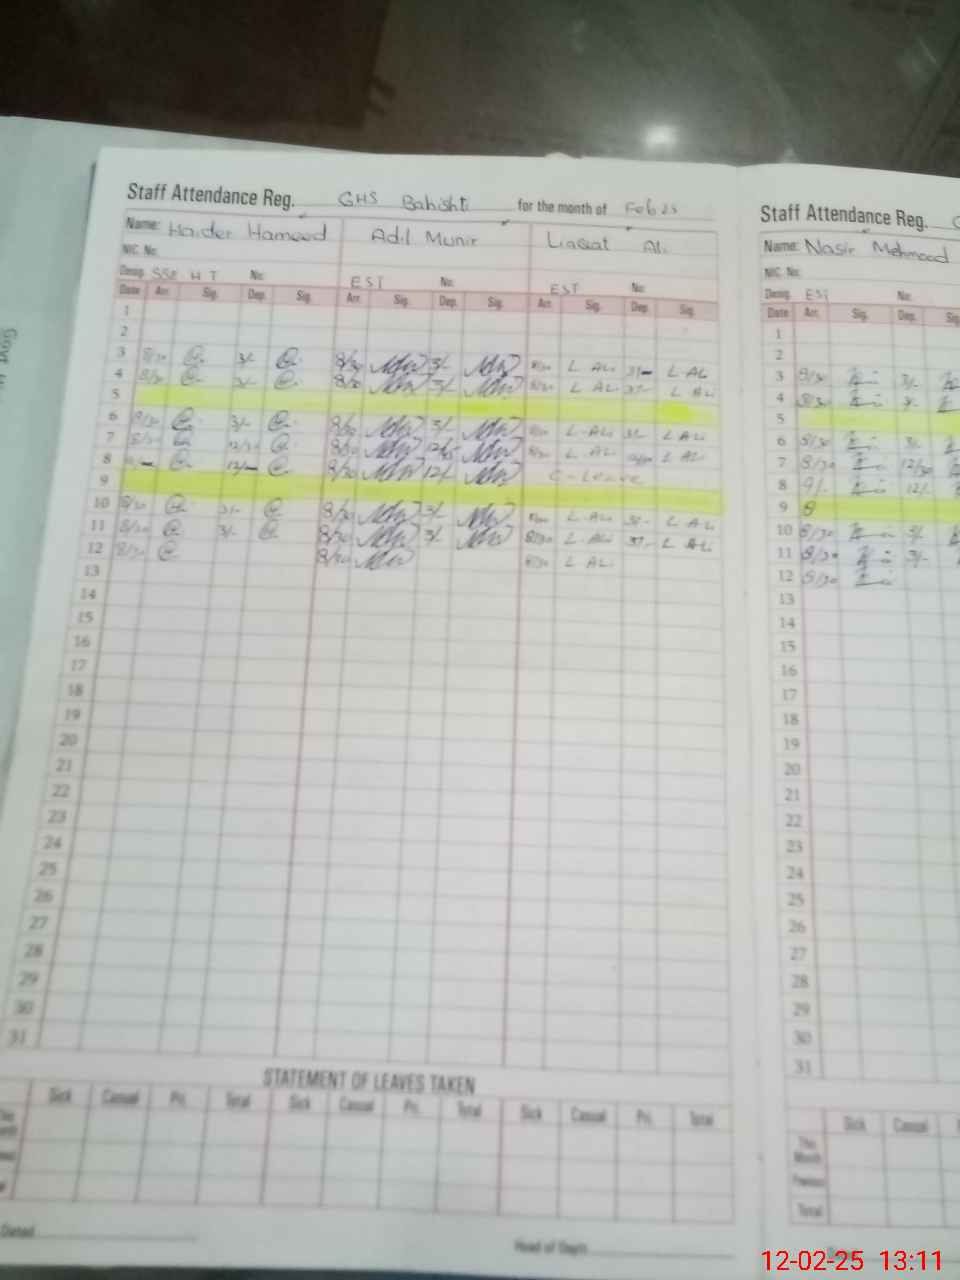 Staff Attendance Reg. GHS Bahishti for the month of Feb 25
Name: Haider Hameed Adil Munir Liaqat Ali
NIC. No.
Desig. SSE HT No. EST No. EST No.
Date Arr. Sig. Dep. Sig. Arr. Sig. Dep. Sig. Arr. Sig. Dep. Sig.
1
2
3 8/30 3/- 8/30 3/- 8/30 L ALi 3/- L ALi
4 8/30 3/- 8/30 3/- 8/30 L ALi 3/- L ALi
5
6 8/30 3/- 8/30 3/- 8/30 L ALi 3/- L ALi
7 8/30 12/30 8/30 8/30 L ALi 12/30 L ALi
8 9/- 12/- 8/30 12/- C-Leave
9
10 8/30 3/- 8/30 3/- 8/30 L ALi 3/- L ALi
11 8/30 3/- 8/30 3/- 8/30 L ALi 3/- L ALi
12 8/30 8/30 8/30 L ALi
13
14
15
16
17
18
19
20
21
22
23
24
25
26
27
28
29
30
31
STATEMENT OF LEAVES TAKEN
Sick Casual Pri. Total Sick Casual Pri. Total Sick Casual Pri. Total
Dated
Head of Deptt.
Staff Attendance Reg.
Name: Nasir Mehmood
NIC. No.
Desig. EST No.
Date Arr. Sig. Dep.
1
2
3 8/30 3/-
4 8/30 3/-
5
6 8/30 3/-
7 8/30 12/30
8 9/- 12/-
9
10 8/30 3/-
11 8/30 3/-
12 8/30
13
14
15
16
17
18
19
20
21
22
23
24
25
26
27
28
29
30
31
Sick Casual
This Month
Previous
Total
12-02-25 13:11